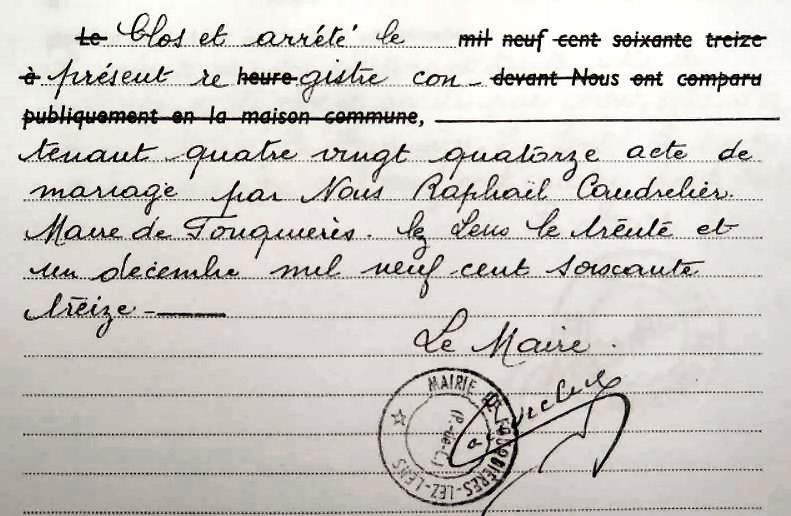 Le Clos et arrêté le mil neuf cent soixante treize
à présent re heure gistre con- devant Nous ont comparu
publiquement en la maison commune,
tenant quatre vingt quatorze acte de
mariage par Nous Raphaël Caudrelier.
Maire de Fouquières. lez Lens le trente et
un décembre mil neuf cent soixante
treize -
Le Maire.
MAIRIE DE FOUQUIÈRES-LEZ-LENS
(P.-de-C.)